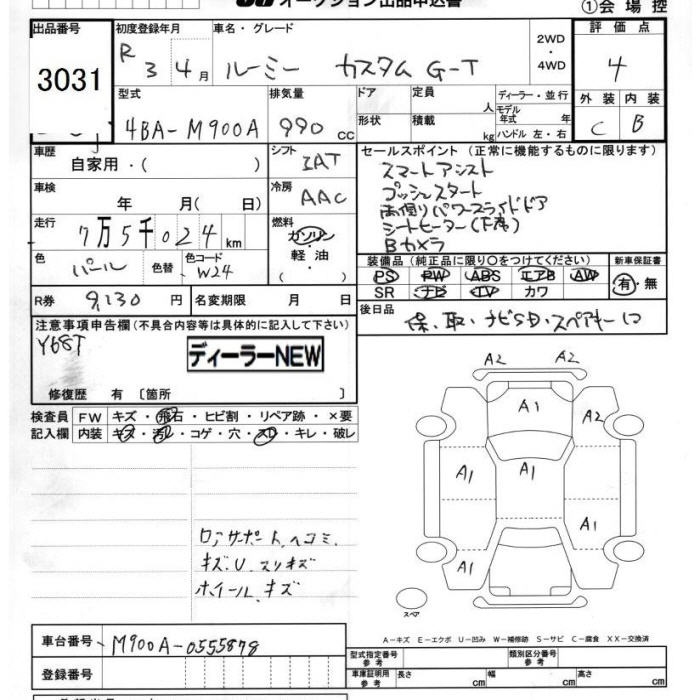 オークション出品申込書
①会場控
出品番号 初度登録年月 車名・グレード 2WD・4WD 評価点
3031 R 3 4月 ルーミー カスタム G-T 4
型式 排気量 ドア 定員 人 ディーラー・並行 外装 内装
4BA-M900A 990 cc 形状 積載 kg モデル年式 年 ハンドル 左・右 C B
車歴 自家用・( ) シフト IAT セールスポイント (正常に機能するものに限ります)
スマートアシスト
車検 年 月( 日) 冷房 AAC プッシュスタート
両側パワースライドドア
走行 7万5千024km 燃料 ガソリン・軽油・( ) シートヒーター(F席)
Bカメラ
色 パール 色替 色コード W24 装備品 (純正品に限り〇をつけてください) 新車保証書
PS PW ABS エアB AW 有・無
SR ナビ TV カワ
R券 9,130 円 名変期限 月 日 後日品 保、取、ナビSD・スペアキー1コ
注意事項申告欄 (不具合内容等は具体的に記入して下さい)
Y68T
ディーラーNEW
修復歴 有 〔箇所 〕
検査員 FW キズ・飛石・ヒビ割・リペア跡・×要
記入欄 内装 キズ・汚レ・コゲ・穴・スレ・キレ・破レ
A2 A2
A1 A2
A1 A1
A1
A1
ロアサポート、ヘコミ、
キズ、U、スリキズ
ホイール、キズ
スペア
A-キズ E-エクボ U-凹み W-補修跡 S-サビ C-腐食 XX-交換済
車台番号 M900A-0555878
型式指定番号 参考 類別区分番号 参考
登録番号 車庫証明用 参考 長さ cm 幅 cm 高さ cm